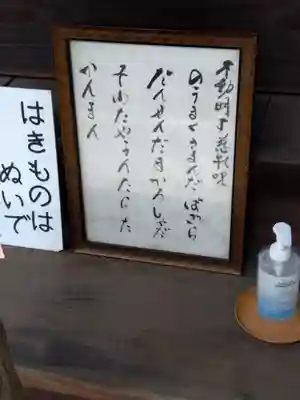 不動明王慈救呪
のうまくさまんだ ばさら
だんせんだまかろしゃだ
そわたやうんたらた
かんまん
はきものは
ぬいで